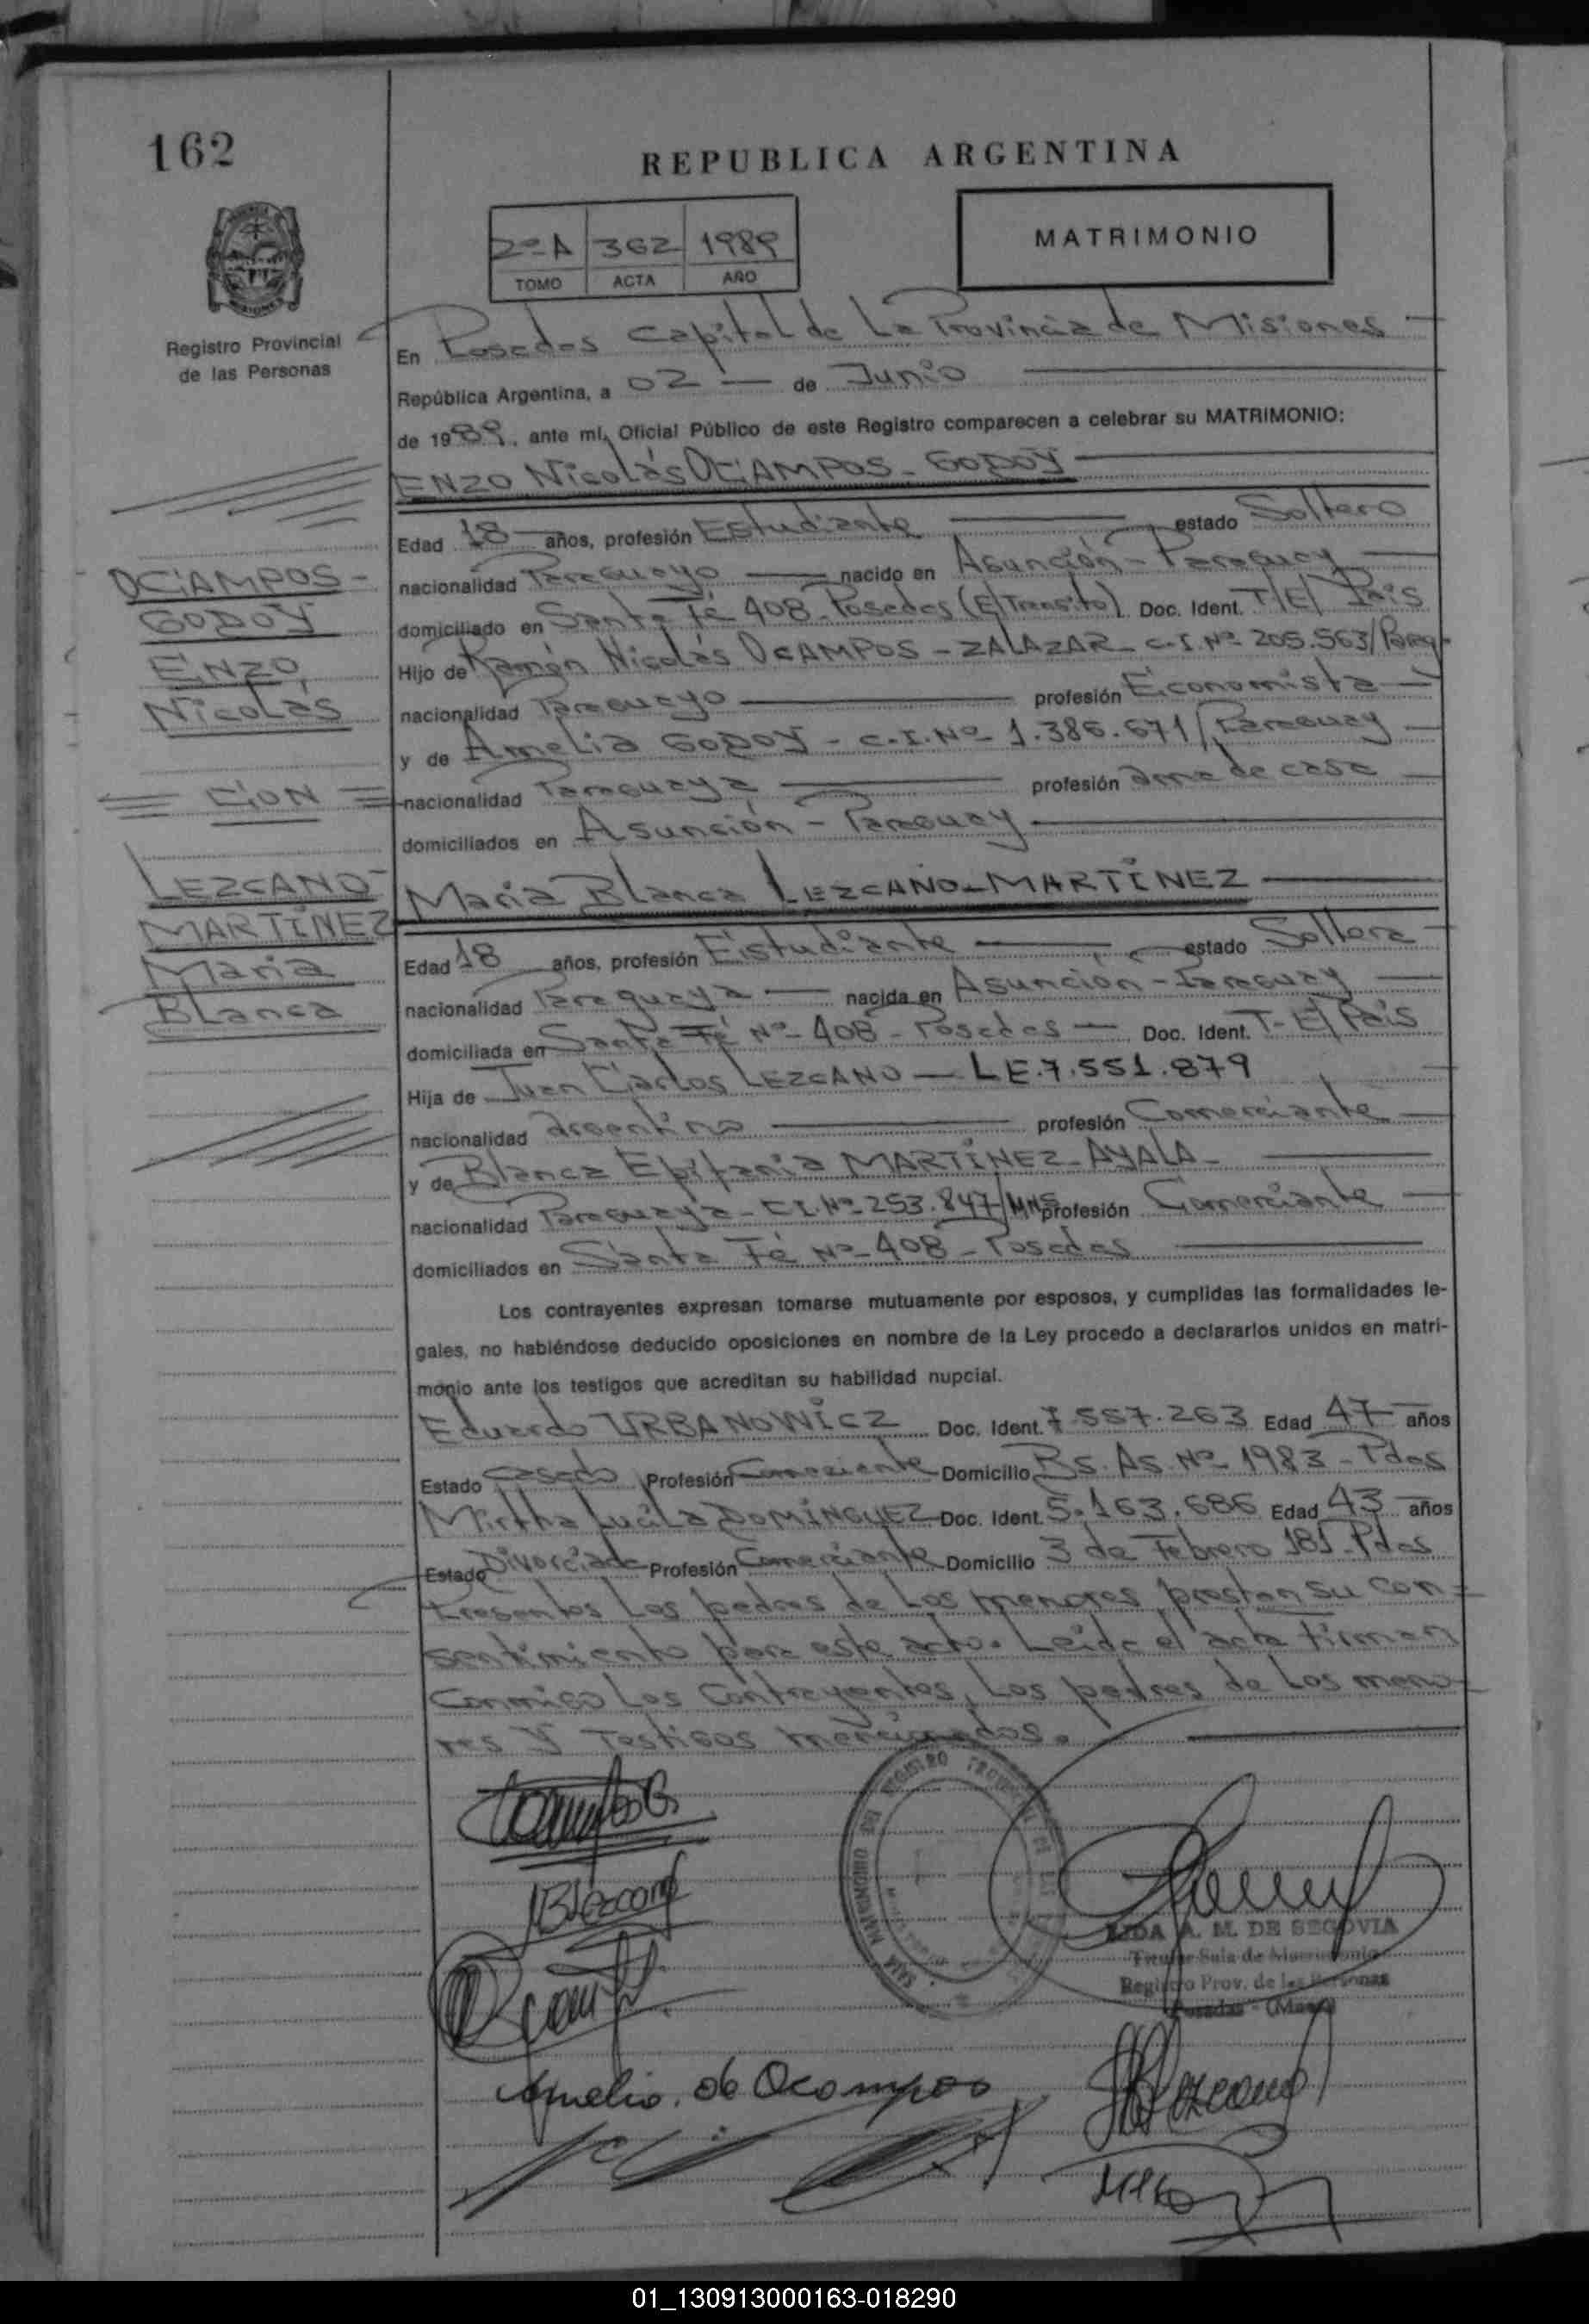 162
REPUBLICA ARGENTINA
2º A 362 1989
TOMO ACTA AÑO
MATRIMONIO
Registro Provincial
de las Personas
En Posadas Capital de La Provincia de Misiones
República Argentina, a 02 — de Junio
de 1989, ante mí, Oficial Público de este Registro comparecen a celebrar su MATRIMONIO:
ENZO Nicolás OCAMPOS - GODOY
Edad 18 años, profesión Estudiante estado Soltero
nacionalidad Paraguayo nacido en Asunción - Paraguay
domiciliado en Santa Fé 408 - Posadas (E/Transito) Doc. Ident. T/E/ País
Hijo de Ramón Nicolás OCAMPOS - ZALAZAR - C.I. Nº 205.563/Parg.
nacionalidad Paraguayo profesión Economista
y de Amelia GODOY - C.I. Nº 1.386.671/Paraguay
nacionalidad Paraguaya profesión ama de casa
domiciliados en Asunción - Paraguay
OCAMPOS -
GODOY
ENZO
Nicolás
CON
LEZCANO -
MARTINEZ
Maria
Blanca
Maria Blanca LEZCANO - MARTINEZ
Edad 18 años, profesión Estudiante estado Soltera
nacionalidad Paraguaya nacida en Asunción - Paraguay
domiciliada en Santa Fé Nº 408 - Posadas Doc. Ident. T - E/ País
Hija de Juan Carlos LEZCANO - L.E. 7.551.879
nacionalidad argentino profesión Comerciante
y de Blanca Epifania MARTINEZ - AYALA -
nacionalidad Paraguaya - C.I. Nº 253.847/MNS profesión Comerciante
domiciliados en Santa Fé Nº 408 - Posadas
Los contrayentes expresan tomarse mutuamente por esposos, y cumplidas las formalidades le-
gales, no habiéndose deducido oposiciones en nombre de la Ley procedo a declararlos unidos en matri-
monio ante los testigos que acreditan su habilidad nupcial.
Eduardo URBANOWICZ Doc. Ident. 7.557.263 Edad 47 años
Estado Casado Profesión Comerciante Domicilio Bs. As. Nº 1983 - Pdas
Mirtha Lucila DOMINGUEZ Doc. Ident. 5.163.686 Edad 43 años
Estado Divorciada Profesión Comerciante Domicilio 3 de Febrero 181 - Pdas
Presentes los padres de los menores prestan su con-
sentimiento para este acto. Leida el acta firman
Conmigo Los Contrayentes, Los padres de Los meno-
res y Testigos mencionados.
LIDA A. M. DE SEGOVIA
Titular Sala de Matrimonio
Registro Prov. de las Personas
Posadas - (Mnes)
Amelia de Ocampos
01_130913000163-018290